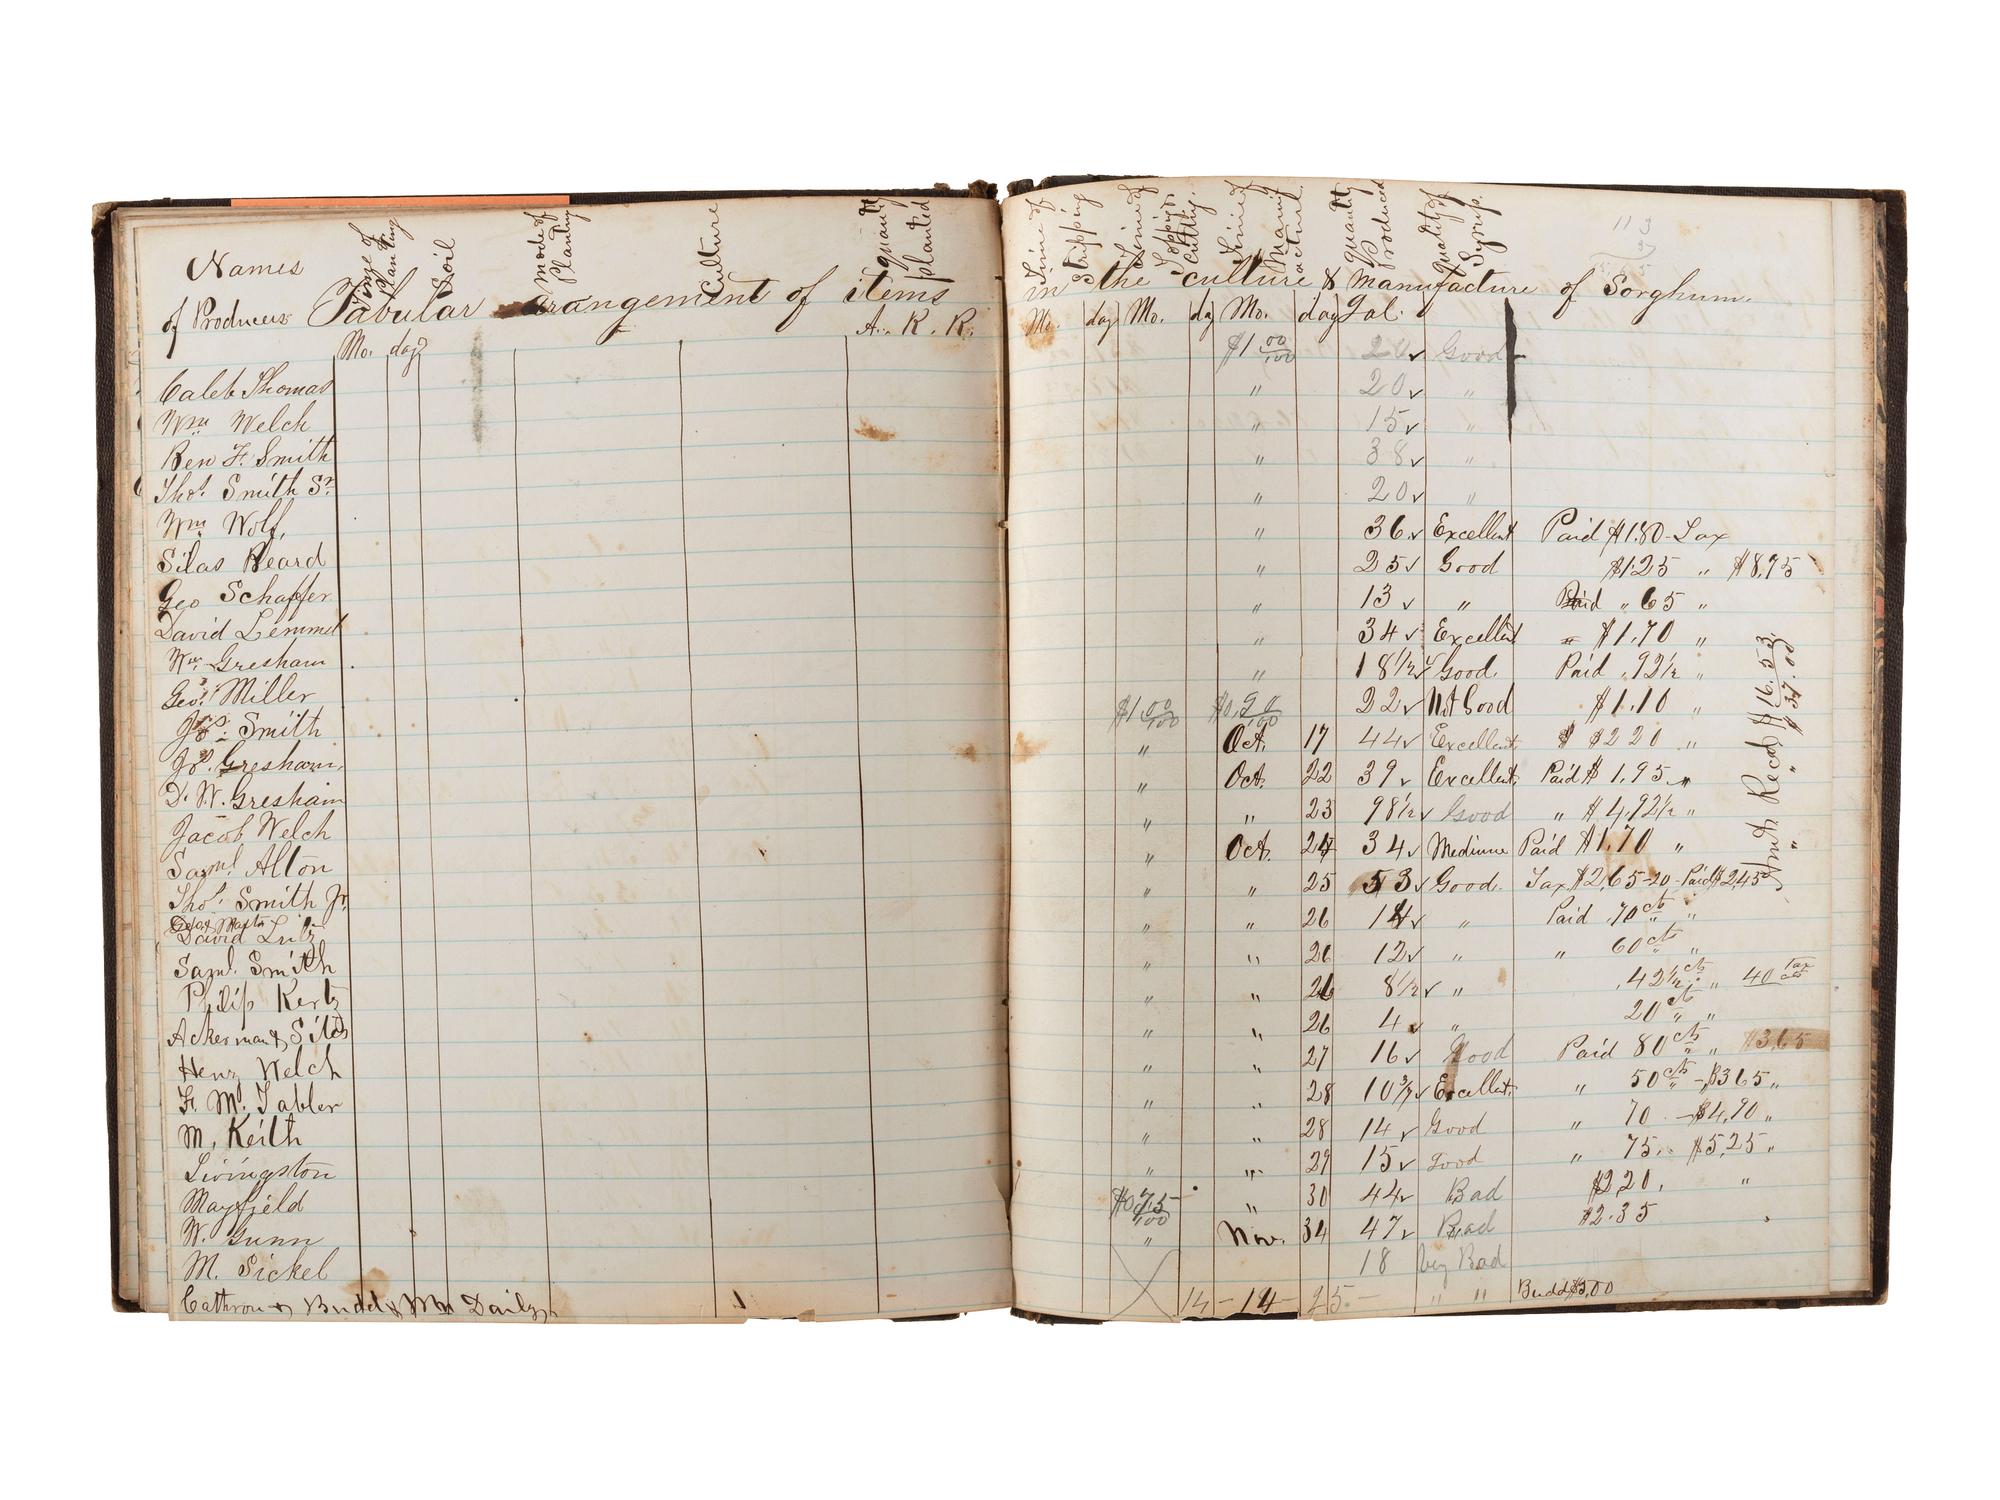 Names
of Producers
Time of Planting
Soil
Mode of Planting
Culture
Quantity planted
Tabular arangement of items
Mo. day
A. R. R.
Caleb Thomas
Wm Welch
Ben F. Smith
Thos. Smith Sr.
Wm. Wolf,
Silas Beard
Geo Schaffer
David Lemmel
Wm. Gresham
Geo. Miller
Jos. Smith
Jos. Gresham,
D. W. Gresham
Jacob Welch
Saml. Alton
Thos. Smith Jr.
David Lutz
Saml. Smith
Philip Kertz
Ackerman & Sites
Henry Welch
F. M. Tabler
M. Keith
Livingston
Mayfield
W. Gunn
M. Sickel
Cathron & Budd & Wm Daily
Time of Stripping
Time of Topping & Cutting
Time of Manufacture
Quantity Produced
Quality of Syrup
in the culture & manufacture of Sorghum.
Mo. day Mo. day Mo. day Gal.
$1 00/100 20 ✓ Good
" 20 ✓ "
" 15 ✓ "
" 38 ✓ "
" 20 ✓ "
" 36 ✓ Excellent Paid $1.80 - Tax
" 25 ✓ Good $1.25 " $8,95
" 13 ✓ " Paid " 65 "
" 34 ✓ Excellent " $1.70 "
" 18 1/2 ✓ Good. Paid .92 1/2 "
$1 00/100 22 ✓ Not Good $1.10 "
" Oct. 17 44 ✓ Excellent $2 20 "
" Oct. 22 39 ✓ Excellent Paid $1.95 "
" " 23 98 1/2 ✓ Good " $4,92 1/2 "
" Oct. 24 34 ✓ Medium Paid $1.70 "
" " 25 53 ✓ Good. Tax $2,65 - 20 - Paid $2,45
" " 26 14 ✓ " Paid .70 cts "
" " 26 12 ✓ " " 60 cts "
" " 26 8 1/2 ✓ " .42 1/2 cts " 40 tax
" " 26 4 ✓ " 20 ct "
" " 27 16 ✓ Good Paid 80 cts " $3,65
" " 28 10 3/4 ✓ Excellent " 50 cts - $365 "
" " 28 14 ✓ Good " 70 - $4,90 "
" " 29 15 ✓ Good " 75. $5,25 "
$0 75/100 " 30 44 ✓ Bad $2,20. "
" Nov. 47 ✓ Bad $2.35
18 Bad
14 - 14 - 25. - " " Budd $3,00
Amt Recd $16.53
" " $37.00